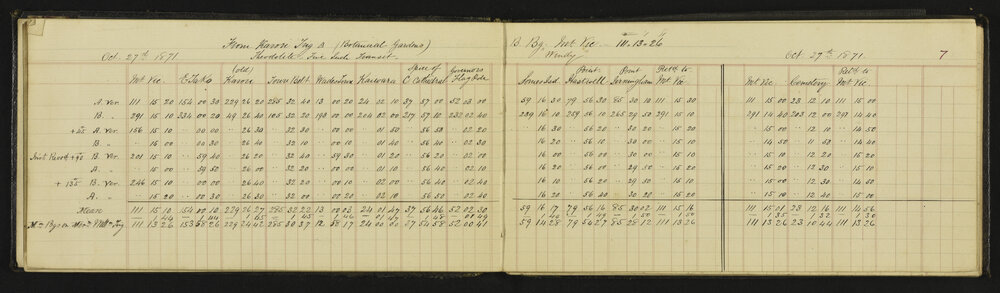 From Karori Trig Δ (Botanical Gardens)
Oct. 27th 1871
Theodolite Five Inch Transit.
Mt Vic. E Tako (old) Karori Town Belt Wadestown Kaiwara Spire of C. Cathedral Governors Flag Pole
A. Ver. 111 15 20 154 00 30 229 26 20 285 32 40 13 00 20 24 02 10 37 57 00 52 03 00
B. " 291 15 10 334 00 20 49 26 40 105 32 20 193 00 00 204 02 00 217 57 10 232 02 40
+45 A. Ver. 156 15 10 " 00 00 " 26 30 " 32 30 " 00 00 " 01 50 " 56 50 " 02 20
B. " " 16 00 " 00 30 " 26 40 " 32 10 " 00 10 " 01 40 " 56 40 " 02 30
Inst. Revd +90 B. Ver. 201 15 10 " 59 40 " 26 20 " 32 40 " 59 30 " 01 20 " 56 20 " 02 00
A. " " 15 10 " 59 50 " 26 20 " 32 20 " 00 00 " 01 10 " 56 40 " 02 10
+135 B. Ver. 246 15 10 " 00 00 " 26 40 " 32 10 " 00 10 " 01 00 " 56 40 " 02 40
A. " " 15 20 " 00 30 " 26 40 " 32 20 " 00 20 " 02 10 " 56 40 " 02 40
Mean 111 15 10 154 00 10 229 26 27 285 32 22 13 00 02 24 01 47 37 56 46 52 02 30
111 13 26 153 58 26 229 24 42 285 30 37 12 58 17 24 00 00 37 54 58 52 00 41
B. Bg. Mt Vic. 111-13-26
Windy
Oct 27th 1871. 7
Somes Isd. Point Haswell Point Jerningham Retd to Mt Vic Mt Vic. Cemetery Retd to Mt Vic.
59 16 30 79 56 30 85 30 10 111 15 30 111 15 00 23 12 10 111 15 00
239 16 10 259 56 10 265 29 50 291 15 10 291 14 40 203 12 00 291 14 40
" 16 30 " 56 20 " 30 20 " 15 20 " 15 00 " 12 10 " 14 50
" 16 20 " 56 10 " 30 00 " 15 10 " 14 50 " 11 50 " 14 40
" 16 00 " 56 00 " 30 00 " 15 10 " 15 10 " 12 20 " 15 20
" 16 00 " 56 00 " 29 50 " 15 10 " 15 10 " 12 30 " 15 20
" 16 10 " 56 20 " 29 50 " 15 10 " 15 00 " 12 30 " 14 40
" 16 20 " 56 40 " 30 20 " 15 20 " 15 10 " 12 40 " 15 00
59 16 17 79 56 16 85 30 02 111 15 16 111 15 01 23 12 16 111 14 56
1 49 1 49 1 50 1 50 1 35 1 32 1 30
59 14 28 79 54 27 85 28 12 111 13 26 111 13 26 23 10 44 111 13 26